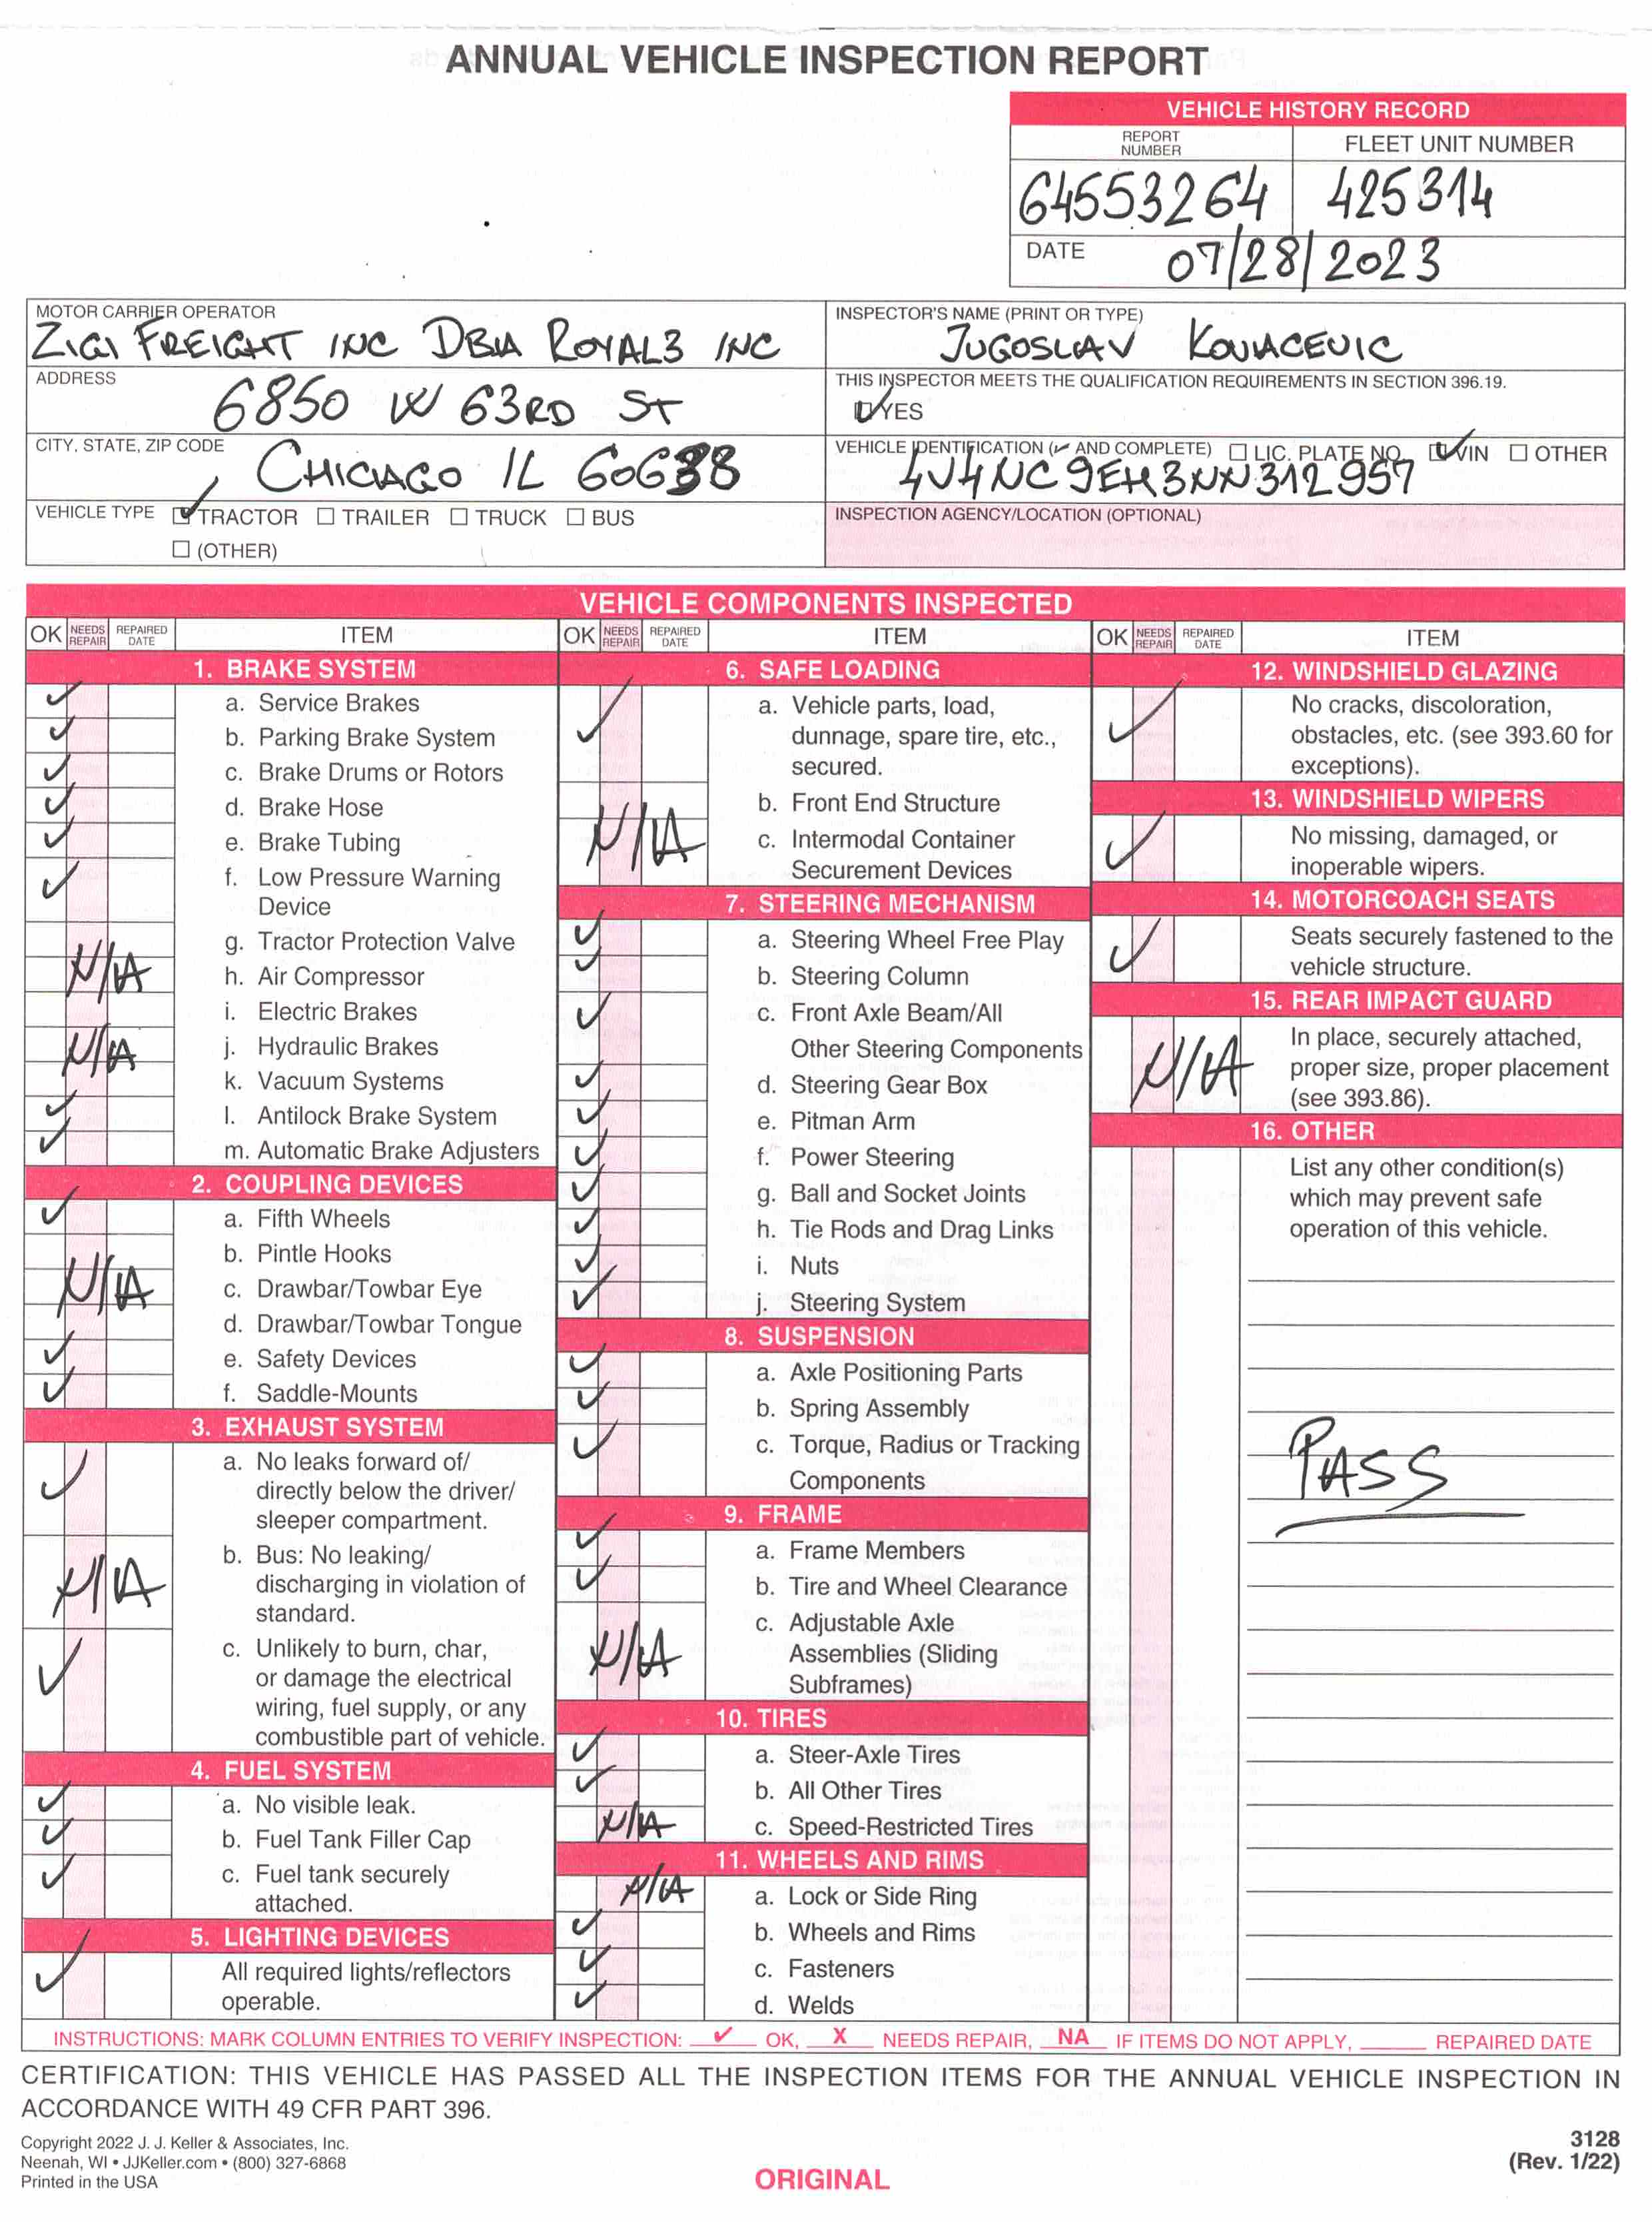 ANNUAL VEHICLE INSPECTION REPORT
VEHICLE HISTORY RECORD
REPORT NUMBER
FLEET UNIT NUMBER
64553264
425314
DATE 07/28/2023
MOTOR CARRIER OPERATOR
ZIGI FREIGHT INC DBA ROYAL3 INC
ADDRESS
6850 W 63RD ST
CITY, STATE, ZIP CODE
CHICAGO IL 60638
VEHICLE TYPE ✓ TRACTOR ☐ TRAILER ☐ TRUCK ☐ BUS
☐ (OTHER)
INSPECTOR'S NAME (PRINT OR TYPE)
JUGOSLAV KOVACEVIC
THIS INSPECTOR MEETS THE QUALIFICATION REQUIREMENTS IN SECTION 396.19.
✓ YES
VEHICLE IDENTIFICATION (✓ AND COMPLETE) ☐ LIC. PLATE NO. ✓ VIN ☐ OTHER
4V4NC9EH3NN312957
INSPECTION AGENCY/LOCATION (OPTIONAL)
VEHICLE COMPONENTS INSPECTED
OK NEEDS REPAIR REPAIRED DATE ITEM
1. BRAKE SYSTEM
✓ a. Service Brakes
✓ b. Parking Brake System
✓ c. Brake Drums or Rotors
✓ d. Brake Hose
✓ e. Brake Tubing
✓ f. Low Pressure Warning
Device
g. Tractor Protection Valve
N/A h. Air Compressor
i. Electric Brakes
N/A j. Hydraulic Brakes
k. Vacuum Systems
✓ l. Antilock Brake System
✓ m. Automatic Brake Adjusters
2. COUPLING DEVICES
✓ a. Fifth Wheels
b. Pintle Hooks
N/A c. Drawbar/Towbar Eye
d. Drawbar/Towbar Tongue
✓ e. Safety Devices
✓ f. Saddle-Mounts
3. EXHAUST SYSTEM
✓ a. No leaks forward of/
directly below the driver/
sleeper compartment.
N/A b. Bus: No leaking/
discharging in violation of
standard.
✓ c. Unlikely to burn, char,
or damage the electrical
wiring, fuel supply, or any
combustible part of vehicle.
4. FUEL SYSTEM
✓ a. No visible leak.
✓ b. Fuel Tank Filler Cap
✓ c. Fuel tank securely
attached.
5. LIGHTING DEVICES
✓ All required lights/reflectors
operable.
OK NEEDS REPAIR REPAIRED DATE ITEM
6. SAFE LOADING
✓ a. Vehicle parts, load,
dunnage, spare tire, etc.,
secured.
b. Front End Structure
N/A c. Intermodal Container
Securement Devices
7. STEERING MECHANISM
✓ a. Steering Wheel Free Play
✓ b. Steering Column
✓ c. Front Axle Beam/All
Other Steering Components
✓ d. Steering Gear Box
✓ e. Pitman Arm
✓ f. Power Steering
✓ g. Ball and Socket Joints
✓ h. Tie Rods and Drag Links
✓ i. Nuts
✓ j. Steering System
8. SUSPENSION
✓ a. Axle Positioning Parts
✓ b. Spring Assembly
✓ c. Torque, Radius or Tracking
Components
9. FRAME
✓ a. Frame Members
✓ b. Tire and Wheel Clearance
N/A c. Adjustable Axle
Assemblies (Sliding
Subframes)
10. TIRES
✓ a. Steer-Axle Tires
✓ b. All Other Tires
N/A c. Speed-Restricted Tires
11. WHEELS AND RIMS
N/A a. Lock or Side Ring
✓ b. Wheels and Rims
✓ c. Fasteners
✓ d. Welds
OK NEEDS REPAIR REPAIRED DATE ITEM
12. WINDSHIELD GLAZING
✓ No cracks, discoloration,
obstacles, etc. (see 393.60 for
exceptions).
13. WINDSHIELD WIPERS
✓ No missing, damaged, or
inoperable wipers.
14. MOTORCOACH SEATS
✓ Seats securely fastened to the
vehicle structure.
15. REAR IMPACT GUARD
N/A In place, securely attached,
proper size, proper placement
(see 393.86).
16. OTHER
List any other condition(s)
which may prevent safe
operation of this vehicle.
PASS
INSTRUCTIONS: MARK COLUMN ENTRIES TO VERIFY INSPECTION: ✓ OK, X NEEDS REPAIR, NA IF ITEMS DO NOT APPLY, ____ REPAIRED DATE
CERTIFICATION: THIS VEHICLE HAS PASSED ALL THE INSPECTION ITEMS FOR THE ANNUAL VEHICLE INSPECTION IN
ACCORDANCE WITH 49 CFR PART 396.
Copyright 2022 J. J. Keller & Associates, Inc.
Neenah, WI • JJKeller.com • (800) 327-6868
Printed in the USA
ORIGINAL
3128
(Rev. 1/22)